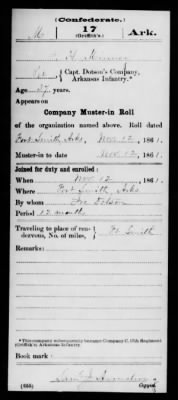 (Confederate.)
M 17 Ark.
(Griffith's.)
Capt. Dotson's Company,
Arkansas Infantry.*
Age 27 years.
Appears on
Company Muster-in Roll
of the organization named above. Roll dated
Fort Smith Arks, Nov 12, 1861.
Muster-in to date Nov 12, 1861.
Joined for duty and enrolled:
When Nov 12, 1861.
Where Fort Smith Arks
By whom Dotson
Period 12 months
Traveling to place of ren-
dezvous, No. of miles, Ft Smith
Remarks:
*This company subsequently became Company C, 17th Regiment
(Griffith's) Arkansas Infantry.
Book mark:
(655) Copyist.